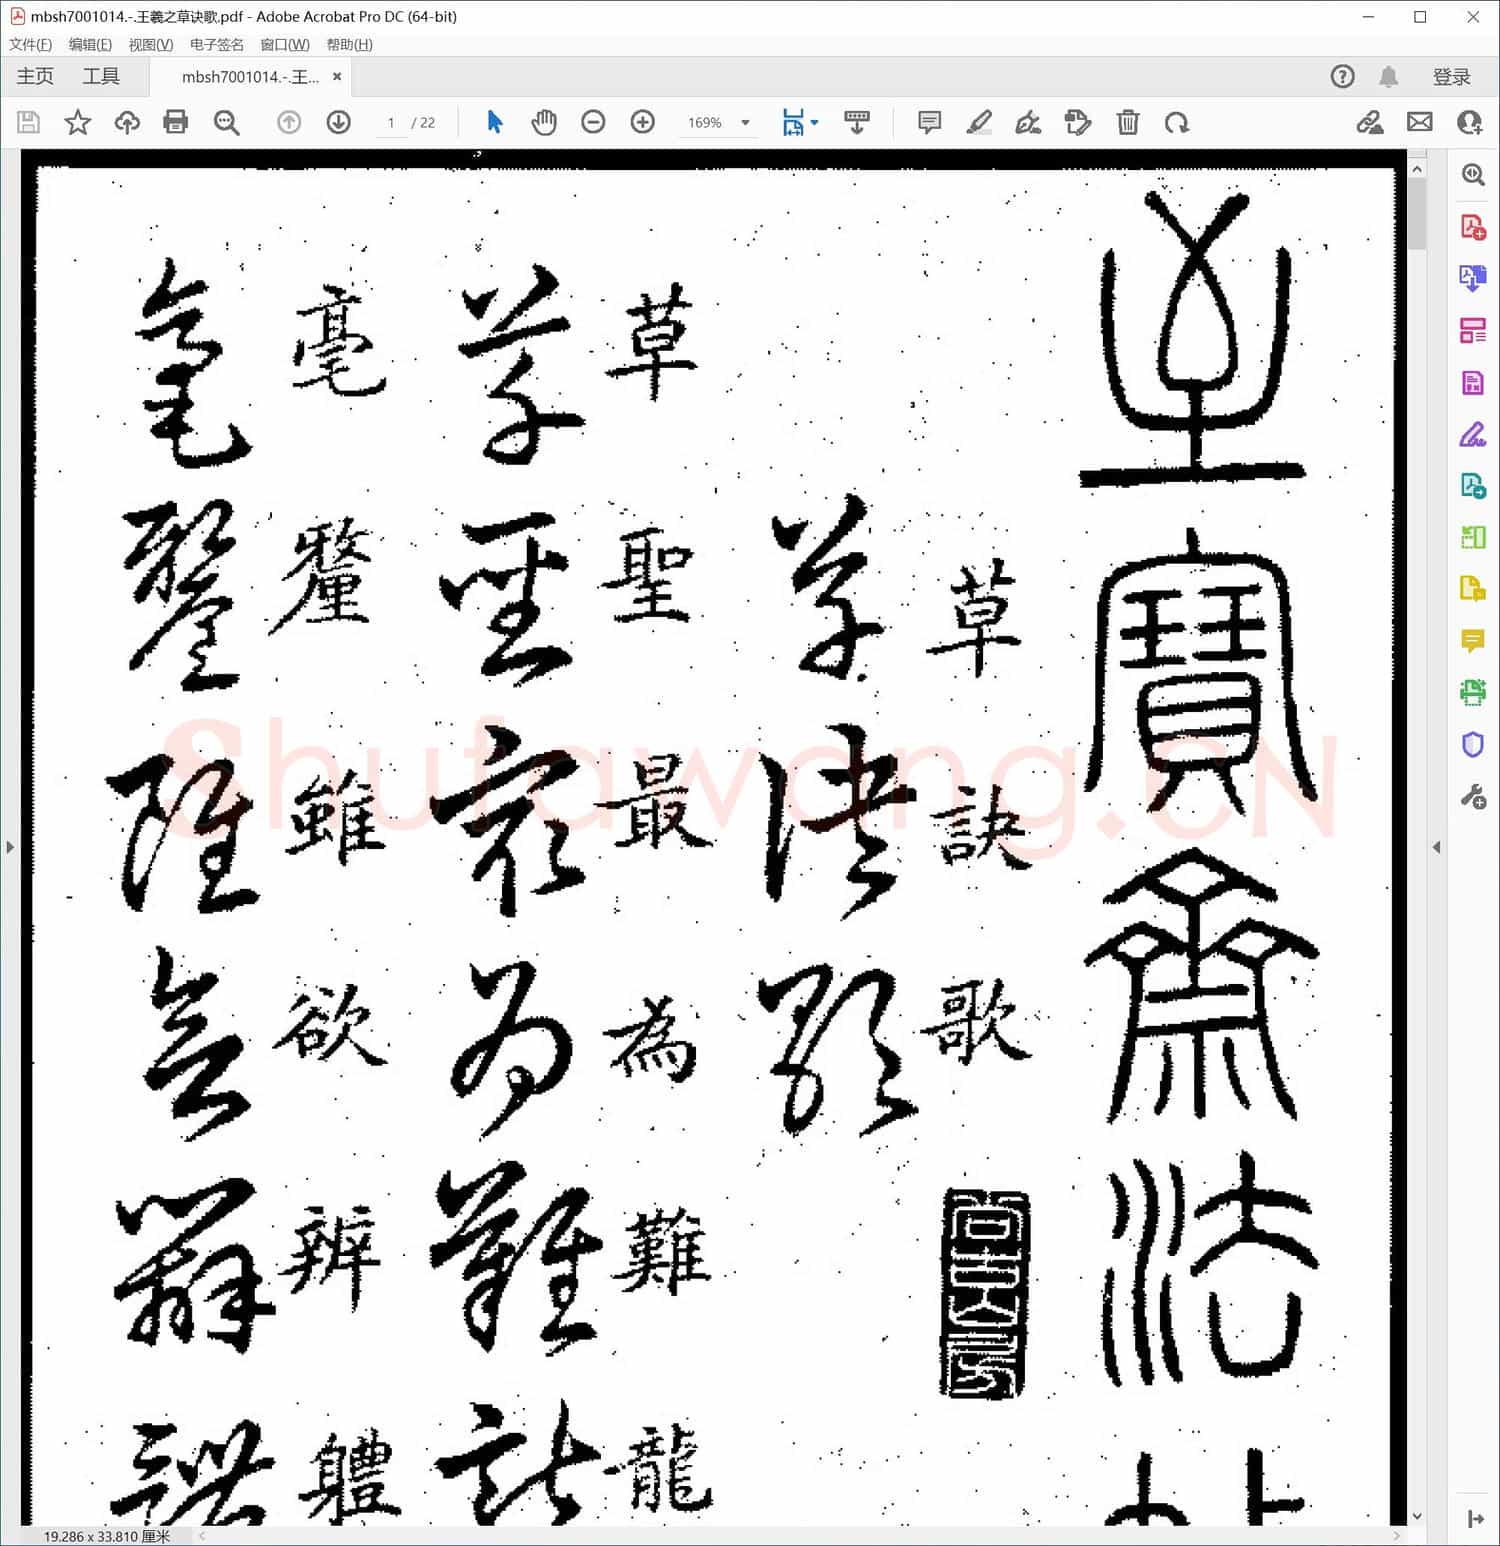 mbsh7001014.-.王羲之草诀歌.pdf - Adobe Acrobat Pro DC (64-bit)
文件(F) 编辑(E) 视图(V) 电子签名 窗口(W) 帮助(H)
主页 工具 mbsh7001014.-.王... 登录
1 / 22 169%
至寶齋法
草訣歌
草訣歌
草聖最為難龍
草聖最為難龍
毫釐雖欲辨軆
毫釐雖欲辨
Shufawang.CN
19.286 x 33.810 厘米